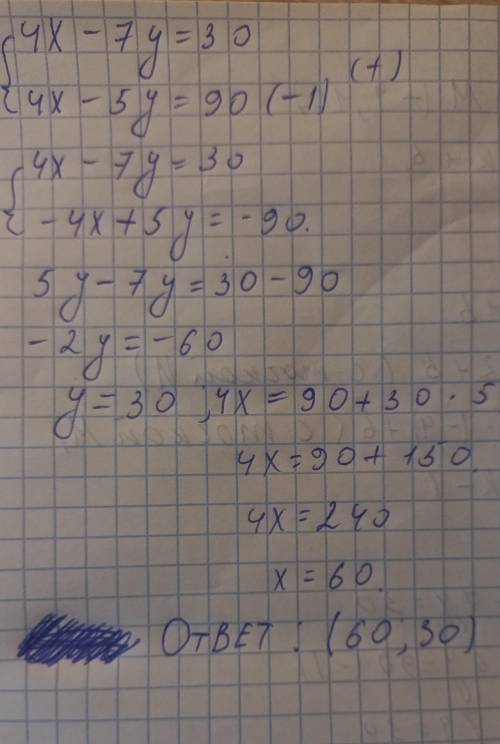 4x - 7y = 30
4x - 5y = 90 (-1) (+)
4x - 7y = 30
- 4x + 5y = -90.
5y - 7y = 30 - 90
- 2y = - 60
y = 30 , 4x = 90 + 30 · 5
4x = 90 + 150.
4x = 240
x = 60.
ОтВЕТ : (60; 30)